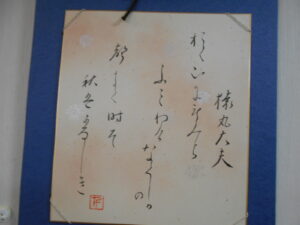 猿丸大夫
おく山にもみち
ふみわけなくしか
の
声きく時そ
秋はかなしき